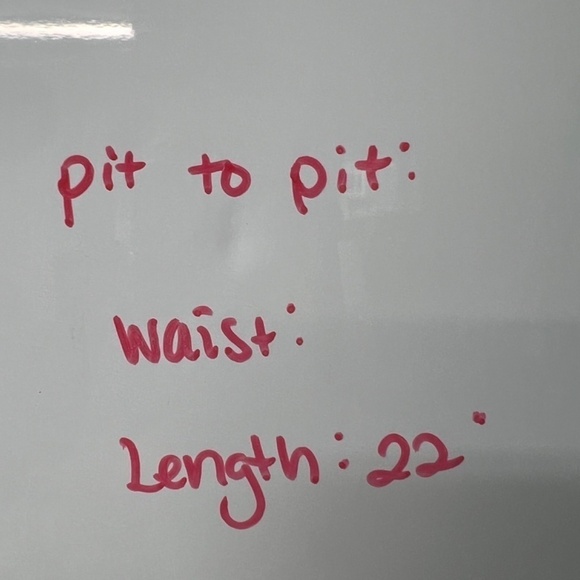 pit to pit:
waist:
Length: 22"